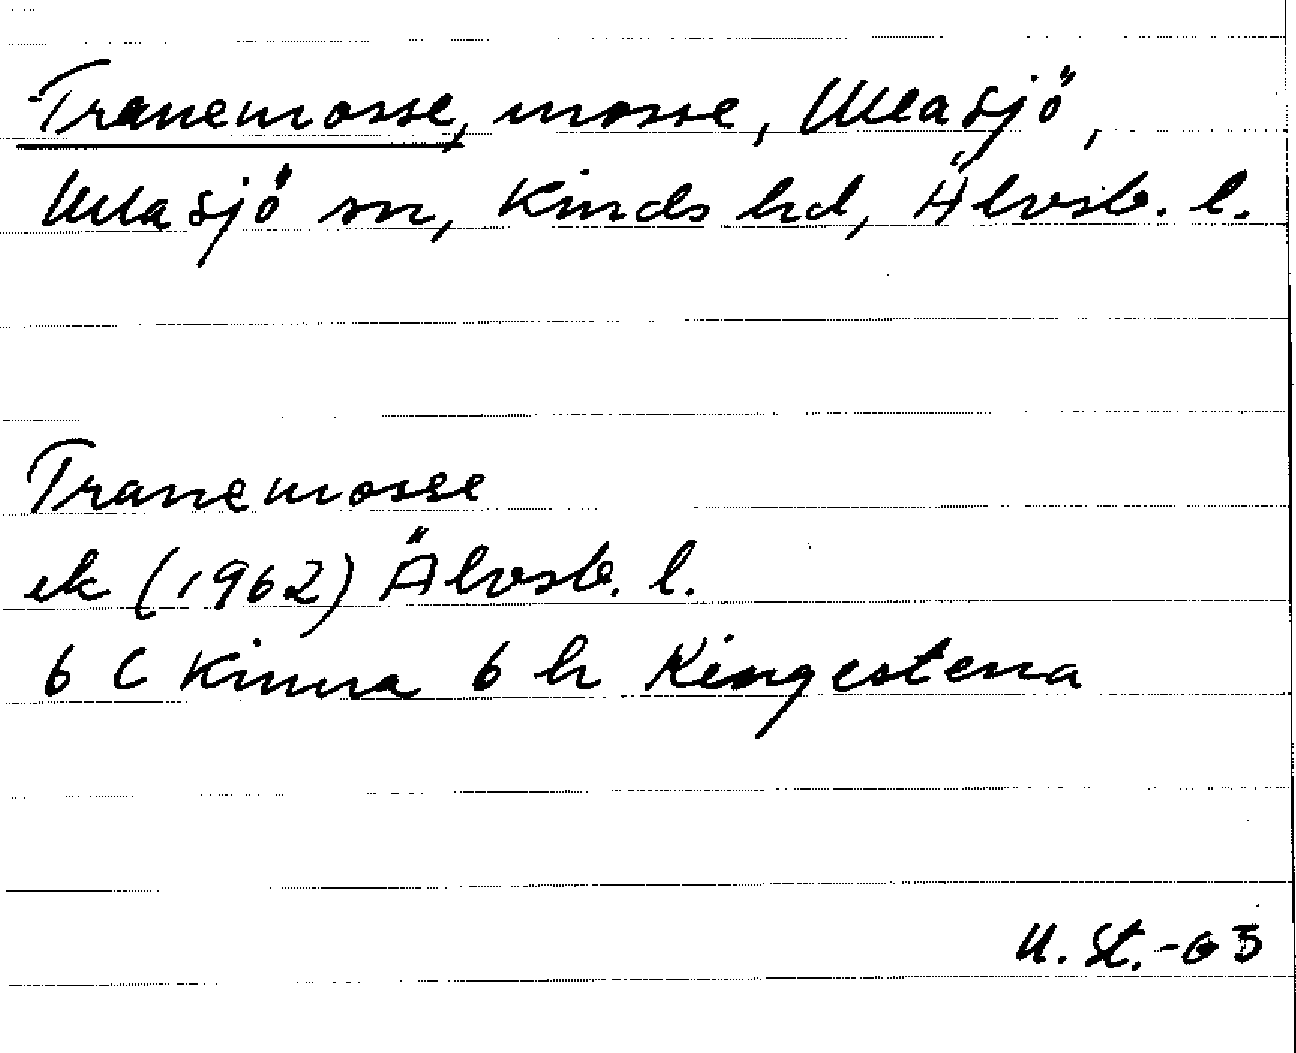 Tranemosse, mosse, Ullasjö,
Ullasjö sn, Kinds hd, Älvsb. l.
Tranemosse
ek (1962) Älvsb. l.
6 C Kinna 6 h Ringestena
U. St. -65